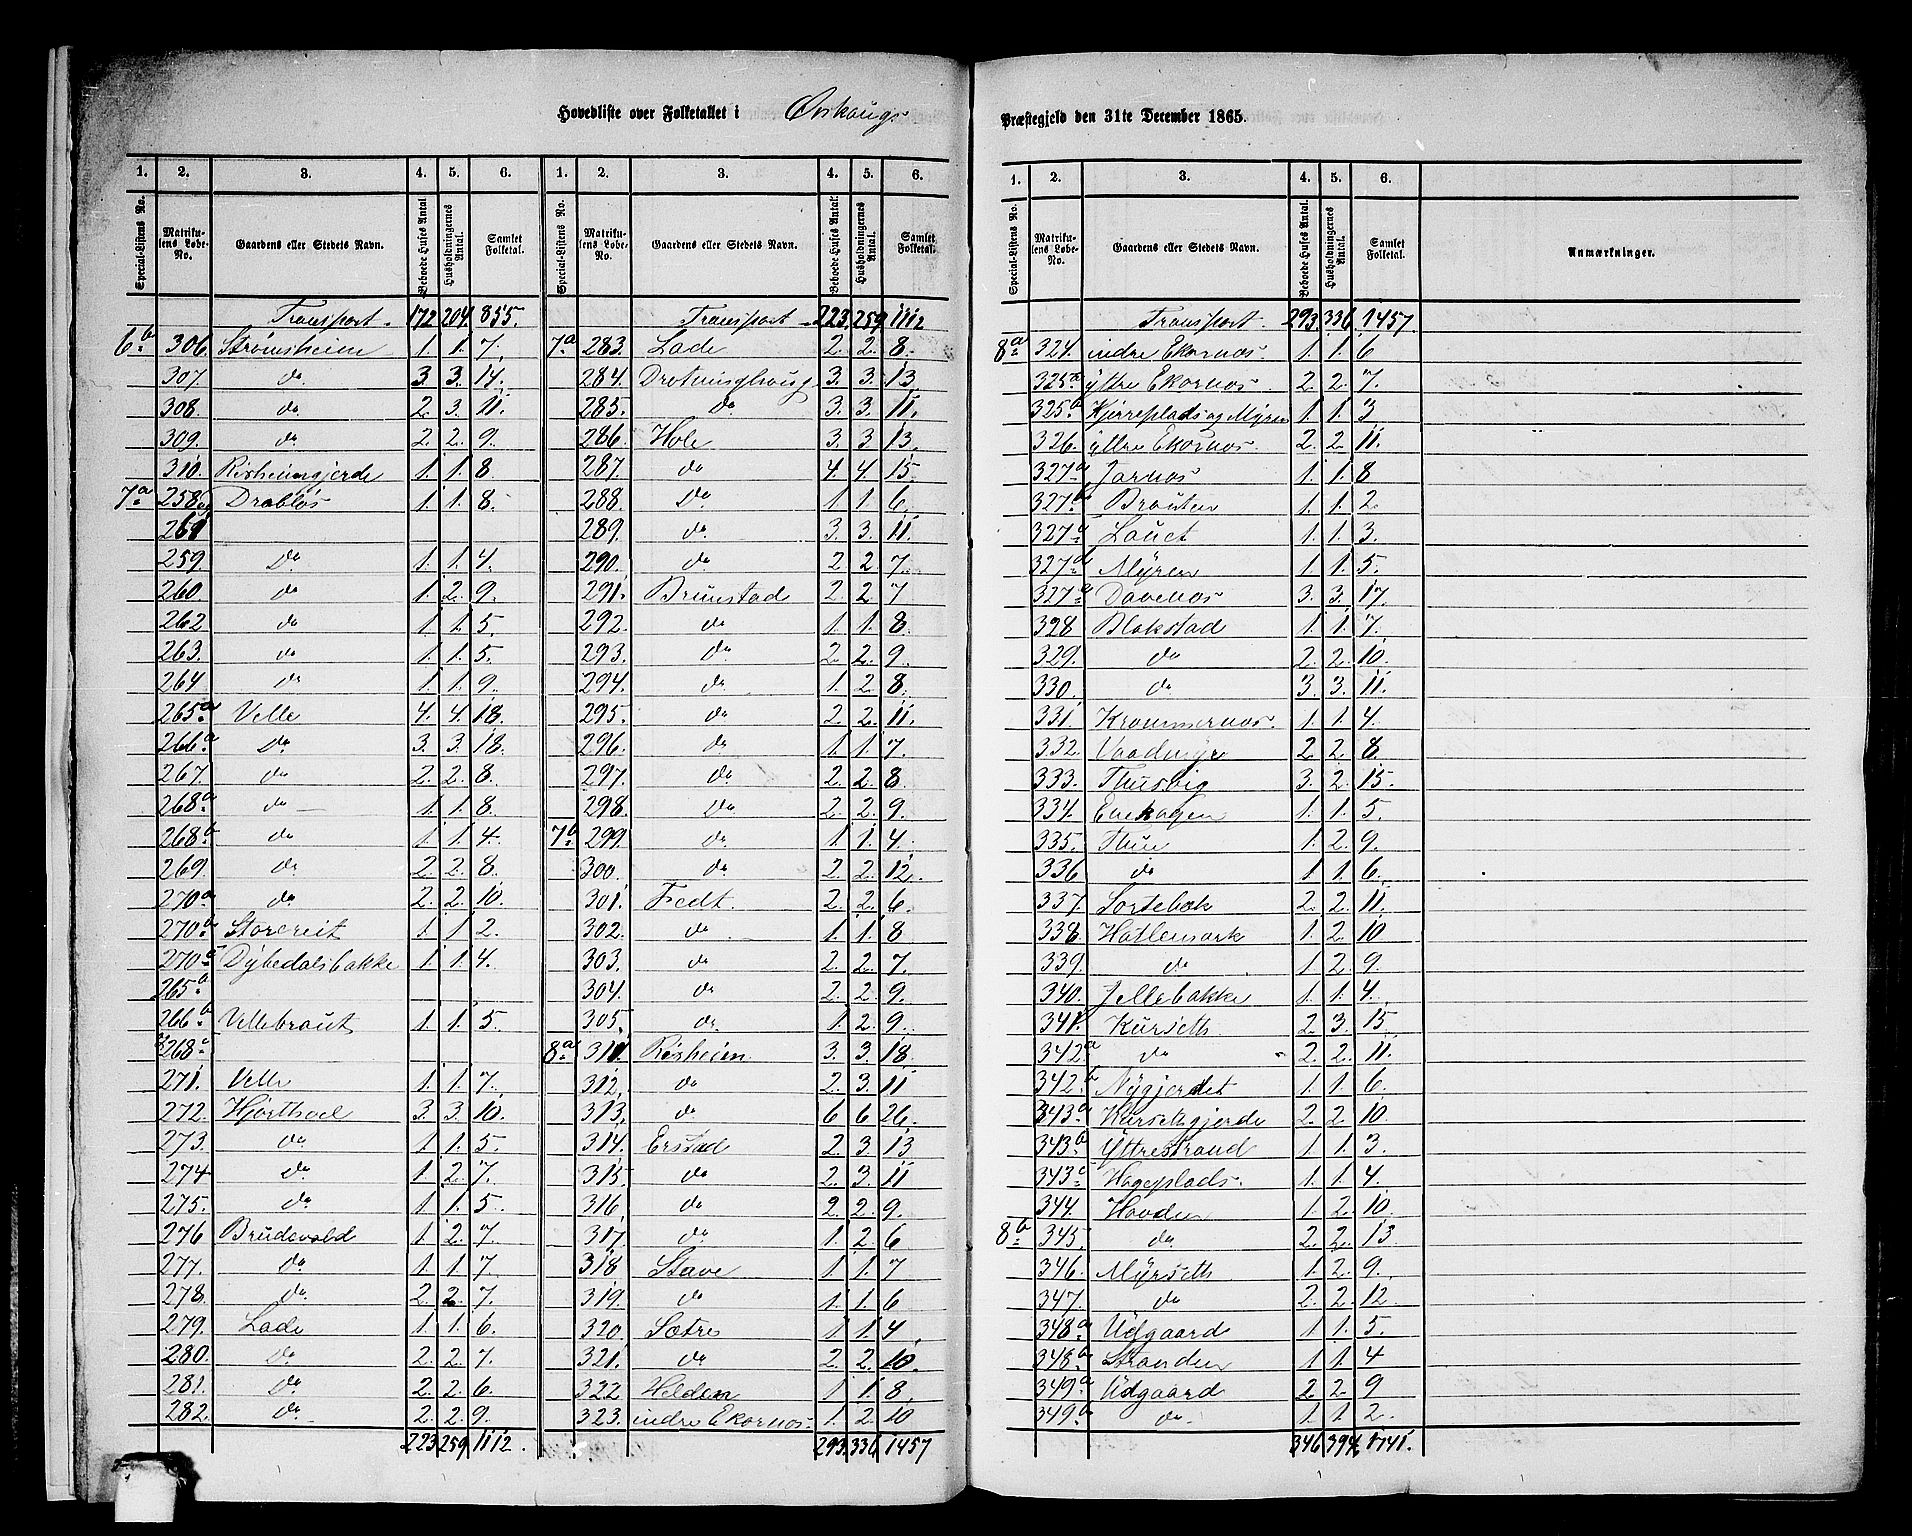 Hovedliste over Folketallet i Ørskougs Præstegjeld den 31te December 1865.
1. 2. 3. 4. 5. 6. 1. 2. 3. 4. 5. 6.
Special-Listens No. Matrikulens Løbe-No. Gaardens eller Stedets Navn. Beboede Huses Antal. Husholdningernes Antal. Samlet Folketal. Special-Listens No. Matrikulens Løbe-No. Gaardens eller Stedets Navn. Beboede Huses Antal. Husholdningernes Antal. Samlet Folketal.
Transport. 172 204 855. Transport 223. 259 1112
6b 306. Strømsheim 1. 1. 7. 7a 283. Lade 2. 2. 8.
307. do 3. 3. 14. 284. Drotninghoug 3. 3. 13
308. do 2. 3. 11. 285. do 3. 3. 11.
309. do 2. 2. 9. 286. Hole 3. 3 13.
310. Risheimgjerde 1. 1. 8. 287. do 4. 4. 15
7a 258 og Drabløs 1. 1. 8. 288. Do 1 1 6.
261 289. do. 3. 3. 11.
259. Do 1. 1. 4. 290. do 2 2 7.
260. do 1. 2. 9. 291. Brunstad 2. 2. 7
262 do 1 1. 5. 292. do 1. 1. 8.
263. do 1. 1. 5. 293. do 2. 2. 9.
264 do 1. 1. 9. 294. do 1. 2. 8.
265a Velle 4. 4. 18. 295. do 2. 2. 11.
266a Do. 3. 3. 18. 296. do 1. 1. 7.
267. do 2. 2. 8. 297. do 2. 2. 8.
268a do 1. 1. 8. 298. Do 2. 2. 9.
268b do 1. 1. 4. 7b 299. do 1. 1. 4.
269. do 2. 2. 8. 300. do 2. 2. 12.
270a do 2. 2. 10. 301. Fedt. 2. 2. 6.
270b Storereit 1. 1 2. 302. do 1. 1. 8
270c Dybedalsbakke 1 1. 4. 303. do 2. 2. 7.
265b 304. do 2. 2. 9.
266b Vellebraut 1. 1. 5. 305. do 1. 2. 9.
268c 8a 311. Risheim 3. 3. 18.
271. Velle 1. 1. 7. 312. do 2. 3. 11
272. Hjorthoel 3. 3. 10. 313. do 6 6 26.
273. do 1. 1. 5. 314. Erstad 2. 3. 13
274 do 1. 2. 7. 315. do 2. 3. 11
275. do 1. 1. 5 316. do 2. 2. 9.
276 Brudevold 1. 2. 7. 317. do 1. 2. 6
277. do 1. 1. 7. 318 Stave 1. 1. 7
278. do. 2. 2. 7. 319. do 1. 1. 6
279. Lade 1. 1. 6. 320. Sætre 1. 1. 4
280. Do 2. 2. 7. 321. do 2. 2. 10.
281. Do 2. 2. 6. 322 Helden 1 1. 8.
282. do. 2. 2. 9. 323. indre Ekornos. 1. 2. 10
223 259. 1112. 293. 336. 1457
1. 2. 3. 4. 5. 6.
Special-Listens No. Matrikulens Løbe-No. Gaardens eller Stedets Navn. Beboede Huses Antal. Husholdningernes Antal. Samlet Folketal. Anmærkninger.
Transport. 293. 336. 1457.
8a 324. indre Ekornos. 1. 1. 6
325a yttre Ekornos 2. 2. 7.
325b Kjærreplads og Myren 1. 1. 3
326. yttre Ekornos. 2. 2. 11.
327a Jarnos 1. 1. 8
327b Brauten 1. 1. 2
327c Lauet 1. 1. 3.
327d Myren 1. 1. 5.
327e Davenos 3. 3. 17.
328 Blakstad 1. 1. 7.
329. do 2. 2. 10.
330. do 3. 3. 11.
331. Krammernos. 1. 1. 4.
332. Vaadmyr 2. 2. 8.
333. Thusvig 3. 2. 15.
334. Enehagen 1. 1. 5.
335. Thue 1. 2. 9.
336 do 1 1. 6.
337. Sortebæk 2. 2. 11.
338. Hatlemark 1. 2. 10
339. do 1. 2. 9.
340. Jellebakke 1. 1. 4.
341. Kurseth 2. 3. 15.
342a do 2. 2. 11.
342b Nygjerdet 1. 1. 6.
343a Kursethgjerde 2. 2. 10
343b Yttrestrand 1. 1. 3.
343c Hageplads. 1. 1. 4.
344. Hovden 1. 2. 10.
8b 345. do. 2. 2. 13.
346. Myrseth 1. 2. 9.
347. do 2. 2. 12.
348a Udgaard 1. 1. 5.
348b Stranden 1 1. 4
349a Udgaard 2. 2. 9
349b do. 1. 1 2.
346. 394. 1741.